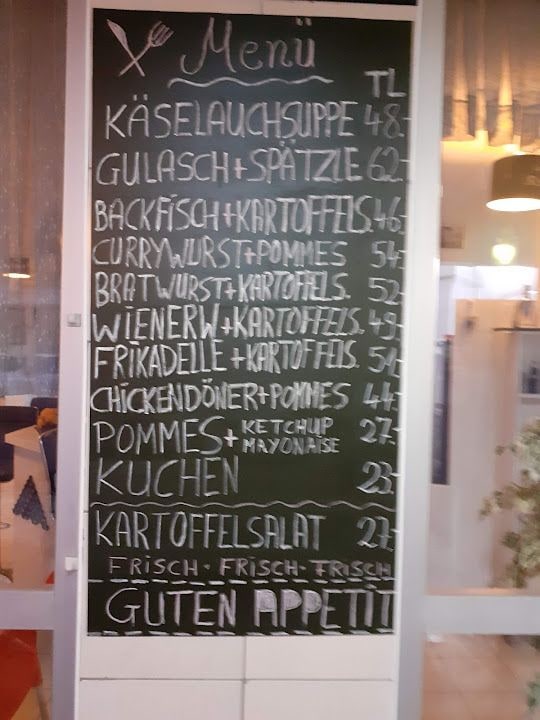 Menü
TL
KÄSELAUCHSUPPE 48.-
GULASCH+SPÄTZLE 62.-
BACKFISCH+KARTOFFELS. 46.-
CURRYWURST+POMMES 54.-
BRATWURST+KARTOFFELS. 52.-
WIENERW+KARTOFFELS. 49.-
FRIKADELLE+KARTOFFELS.
CHICKENDÖNER+POMMES 44.-
POMMES+ KETCHUP MAYONAISE 27.-
KUCHEN 23.-
KARTOFFELSALAT 27.-
FRISCH - FRISCH - FRISCH
GUTEN APPETIT